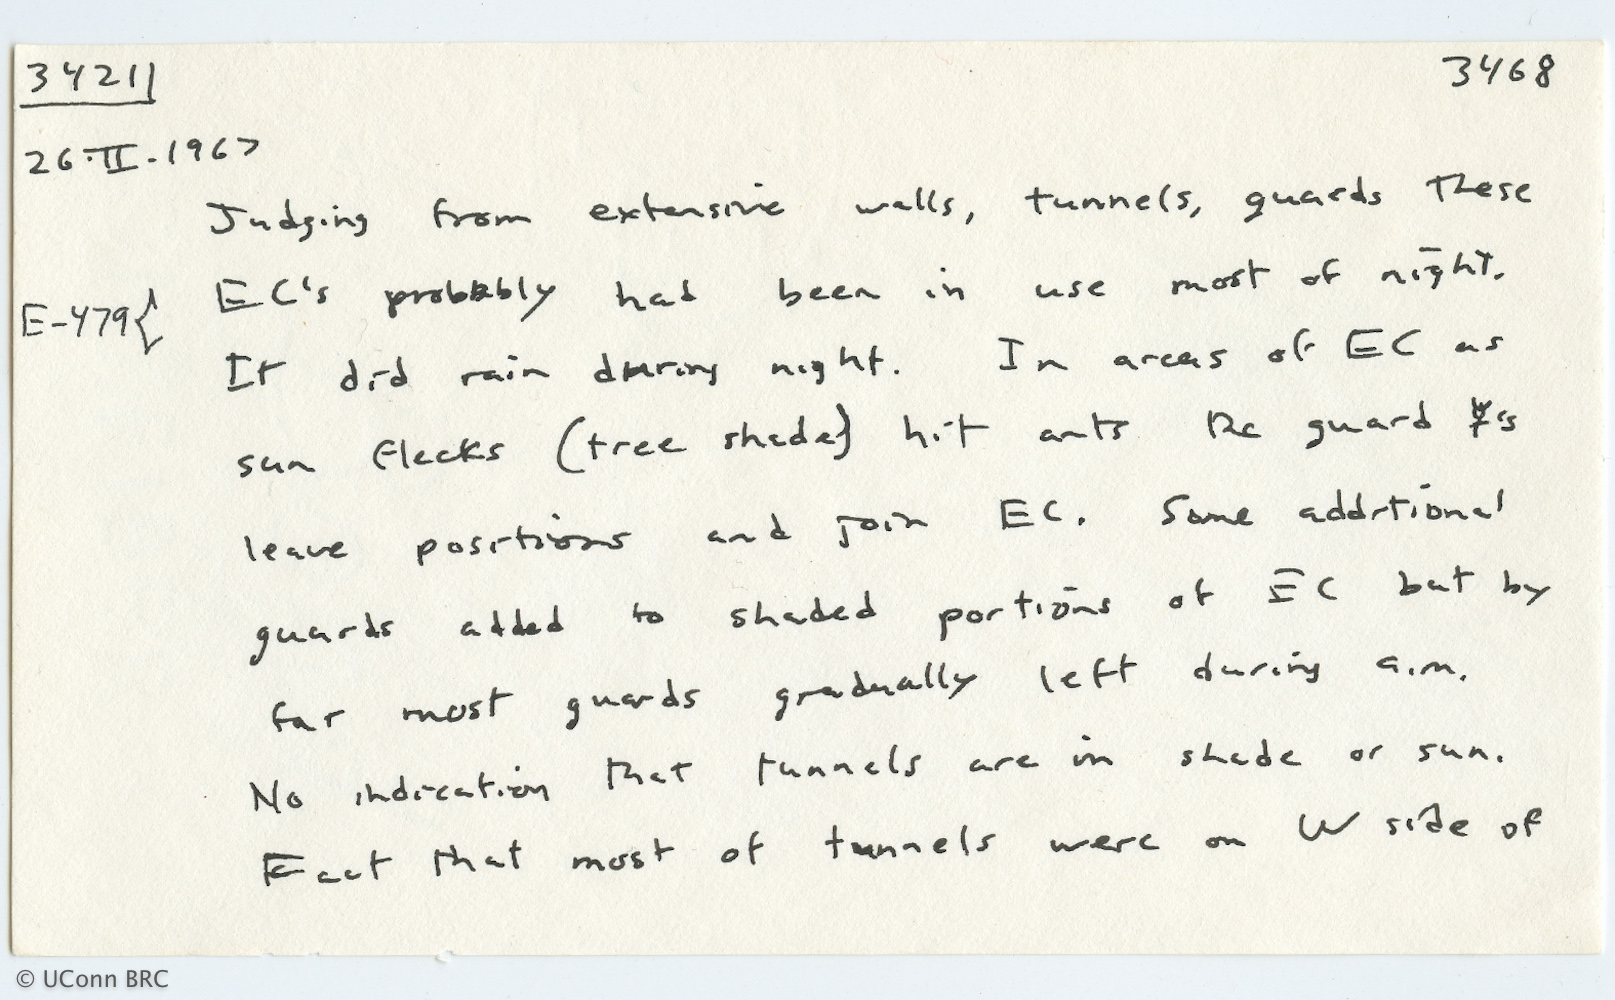 3421 3468
26.II.1967
Judging from extensive walls, tunnels, guards these
E-479{ EC's probably had been in use most of night.
It did rain during night. In areas of EC as
sun flecks (tree shade) hit ants the guard ☿s
leave positions and join EC. Some additional
guards added to shaded portions of EC but by
far most guards gradually left during a.m.
No indication that tunnels are in shade or sun.
Fact that most of tunnels were on W side of
© UConn BRC